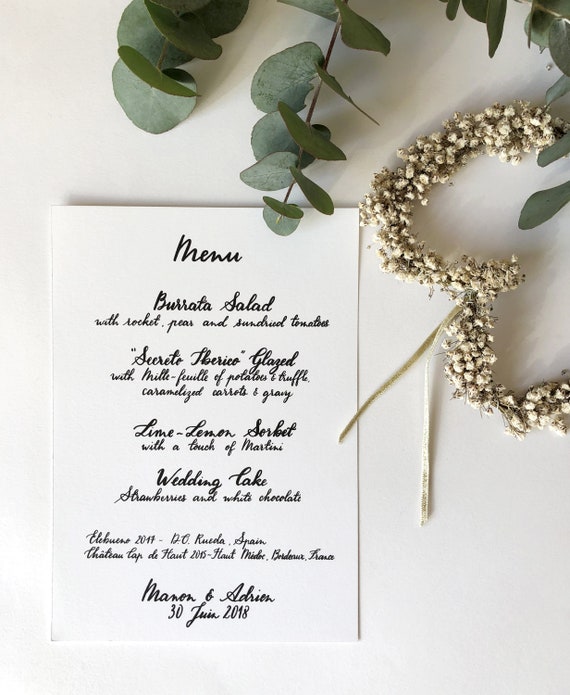 Menu
Burrata Salad
with rocket, pear and sundried tomatoes
"Secreto Iberico" Glazed
with Mille-feuille of potatoes & truffle,
caramelized carrots & gravy
Lime-Lemon Sorbet
with a touch of Martini
Wedding Cake
Strawberries and white chocolate
Elebueno 2017 - D.O. Rueda, Spain
Château Cap de Haut 2015 - Haut Médoc, Bordeaux, France
Manon & Adrien
30 Juin 2018